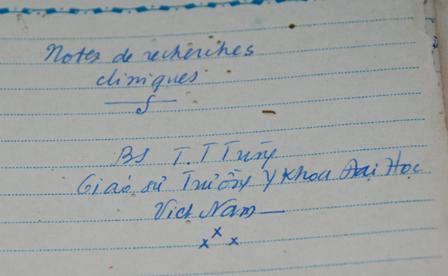 Notes de recherches
cliniques
BS T.T Tùng
Giáo sư Trường Y Khoa Đại Học
Việt Nam
x x x